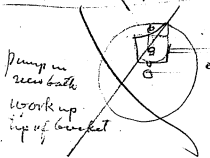 pump in
new bath
work up
tip of bucket